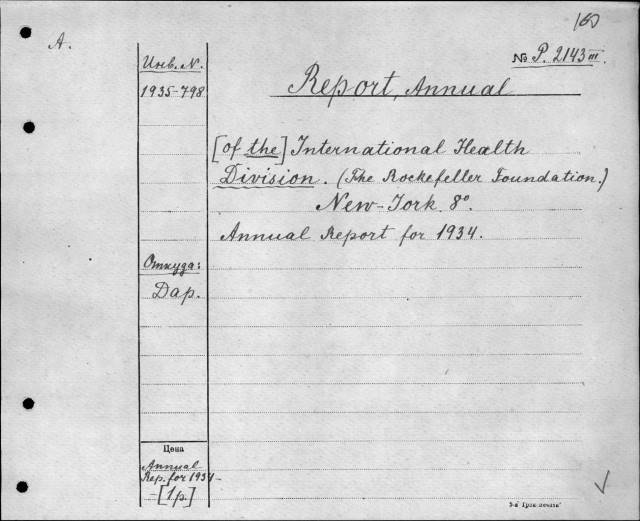 160
A.
№ P. 2143 III.
Инв. N.
1935-798
Report, Annual
[of the] International Health
Division. (The Rockefeller Foundation.)
New-York. 8°.
Annual Report for 1934.
Откуда:
Дар.
Цена
Annual
Rep. for 1934 -
- [1 р.]